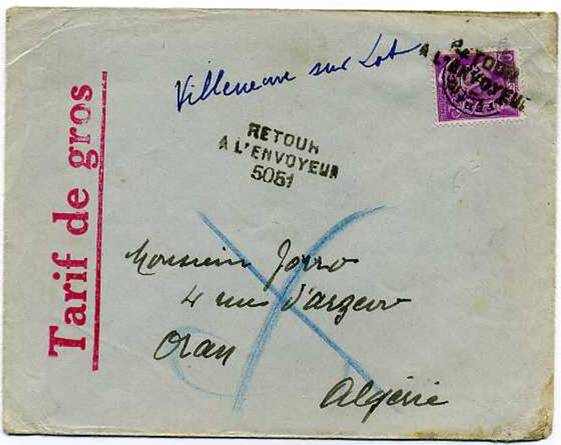 Tarif de gros
Villeneuve sur Lot
RETOUR
A L'ENVOYEUR
RETOUR
A L'ENVOYEUR
5081
Monsieur Jorro
4 rue d'arzew
Oran
Algérie